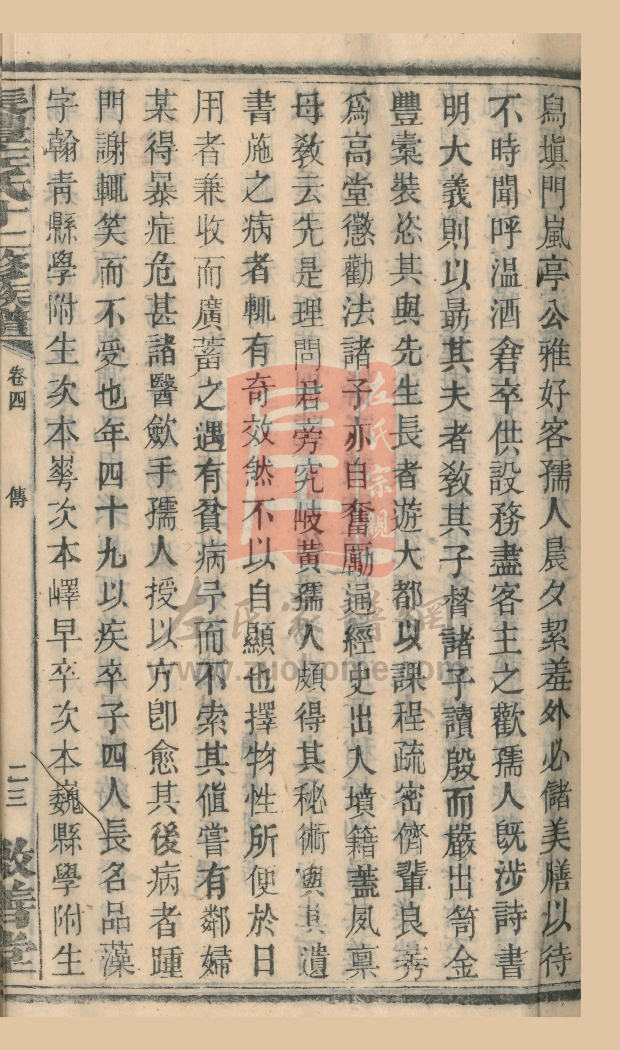 舄塡門嵐亭公雅好客孺人晨夕絜羞外必儲美膳以待
不時聞呼温酒倉卒供設務盡客主之歡孺人既涉詩書
明大義則以勗其夫者敎其子督諸子讀殷而嚴出笥金
豐橐裝恣其與先生長者遊大都以課程疏密儕輩良莠
爲高堂懲勸法諸子亦自奮勵通經史出入墳籍蓋夙稟
母敎云先是理問君旁究岐黃孺人頗得其秘術輿其遺
書施之病者輒有奇效然不以自顯也擇物性所便於日
用者兼收而廣蓄之遇有貧病予而不索其値嘗有鄰婦
某得暴症危甚諸醫歛手孺人授以方卽愈其後病者踵
門謝輒笑而不受也年四十九以疾卒子四人長名品藻
字翰青縣學附生次本粵次本嶧早卒次本巍縣學附生
氏十二修族譜
卷四
傳
二三
敦善堂
左氏宗親
左氏家譜網
www.zuohome.com